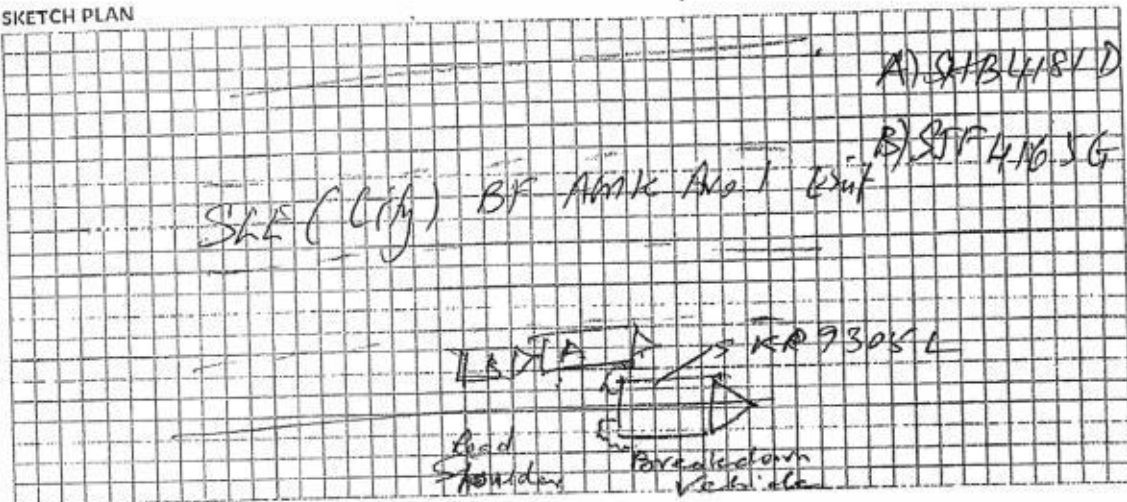 SKETCH PLAN
A) SHB4181D
B) SJF4165G
SLE (City) BF AMK Ave 1 Exit
B A SKR9305L
Road
Shoulder
Breakdown
Vehicle